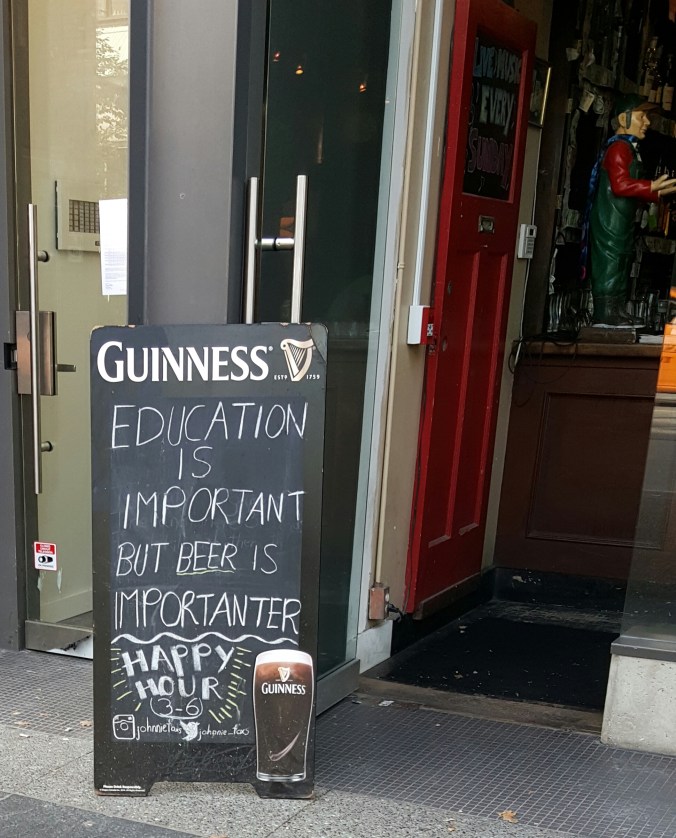 LIVE MUSIC
EVERY
SUNDAY
GUINNESS®
ESTD 1759
EDUCATION
IS
IMPORTANT
BUT BEER IS
IMPORTANTER
HAPPY
HOUR
(3-6)
GUINNESS
johnniefoxs johnnie_foxs
Please Drink Responsibly.